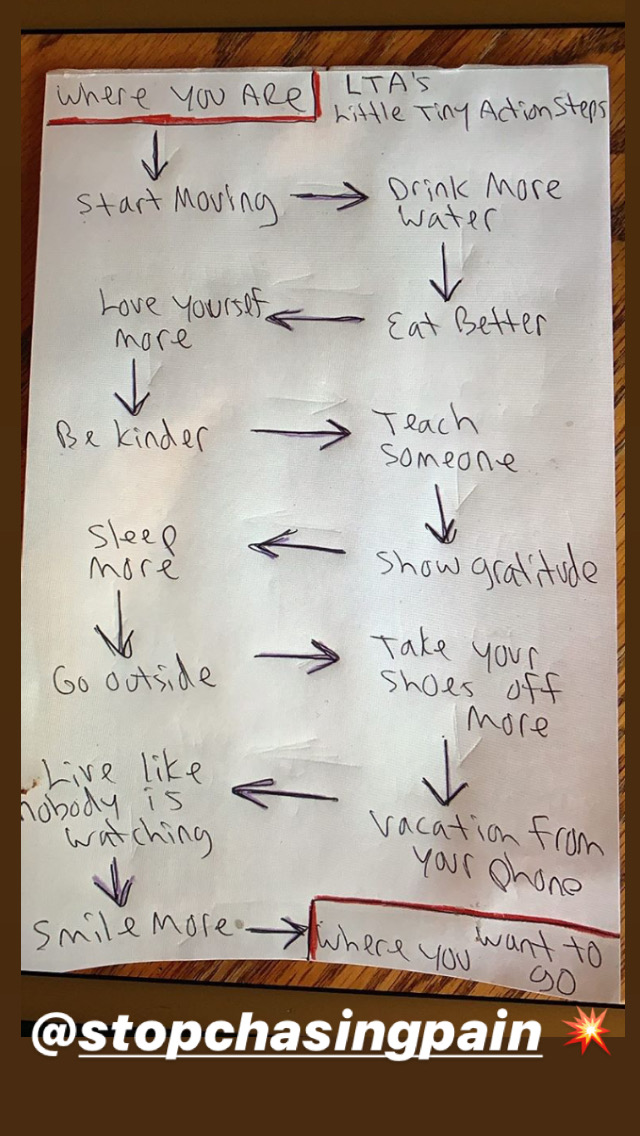 Where You Are
LTA's
Little Tiny Action Steps
Start Moving
Drink More
Water
Eat Better
Love yourself
more
Be kinder
Teach
Someone
Show gratitude
Sleep
More
Go outside
Take your
shoes off
More
Vacation from
your phone
Live like
nobody is
watching
Smile More
Where you want to
go
@stopchasingpain 💥